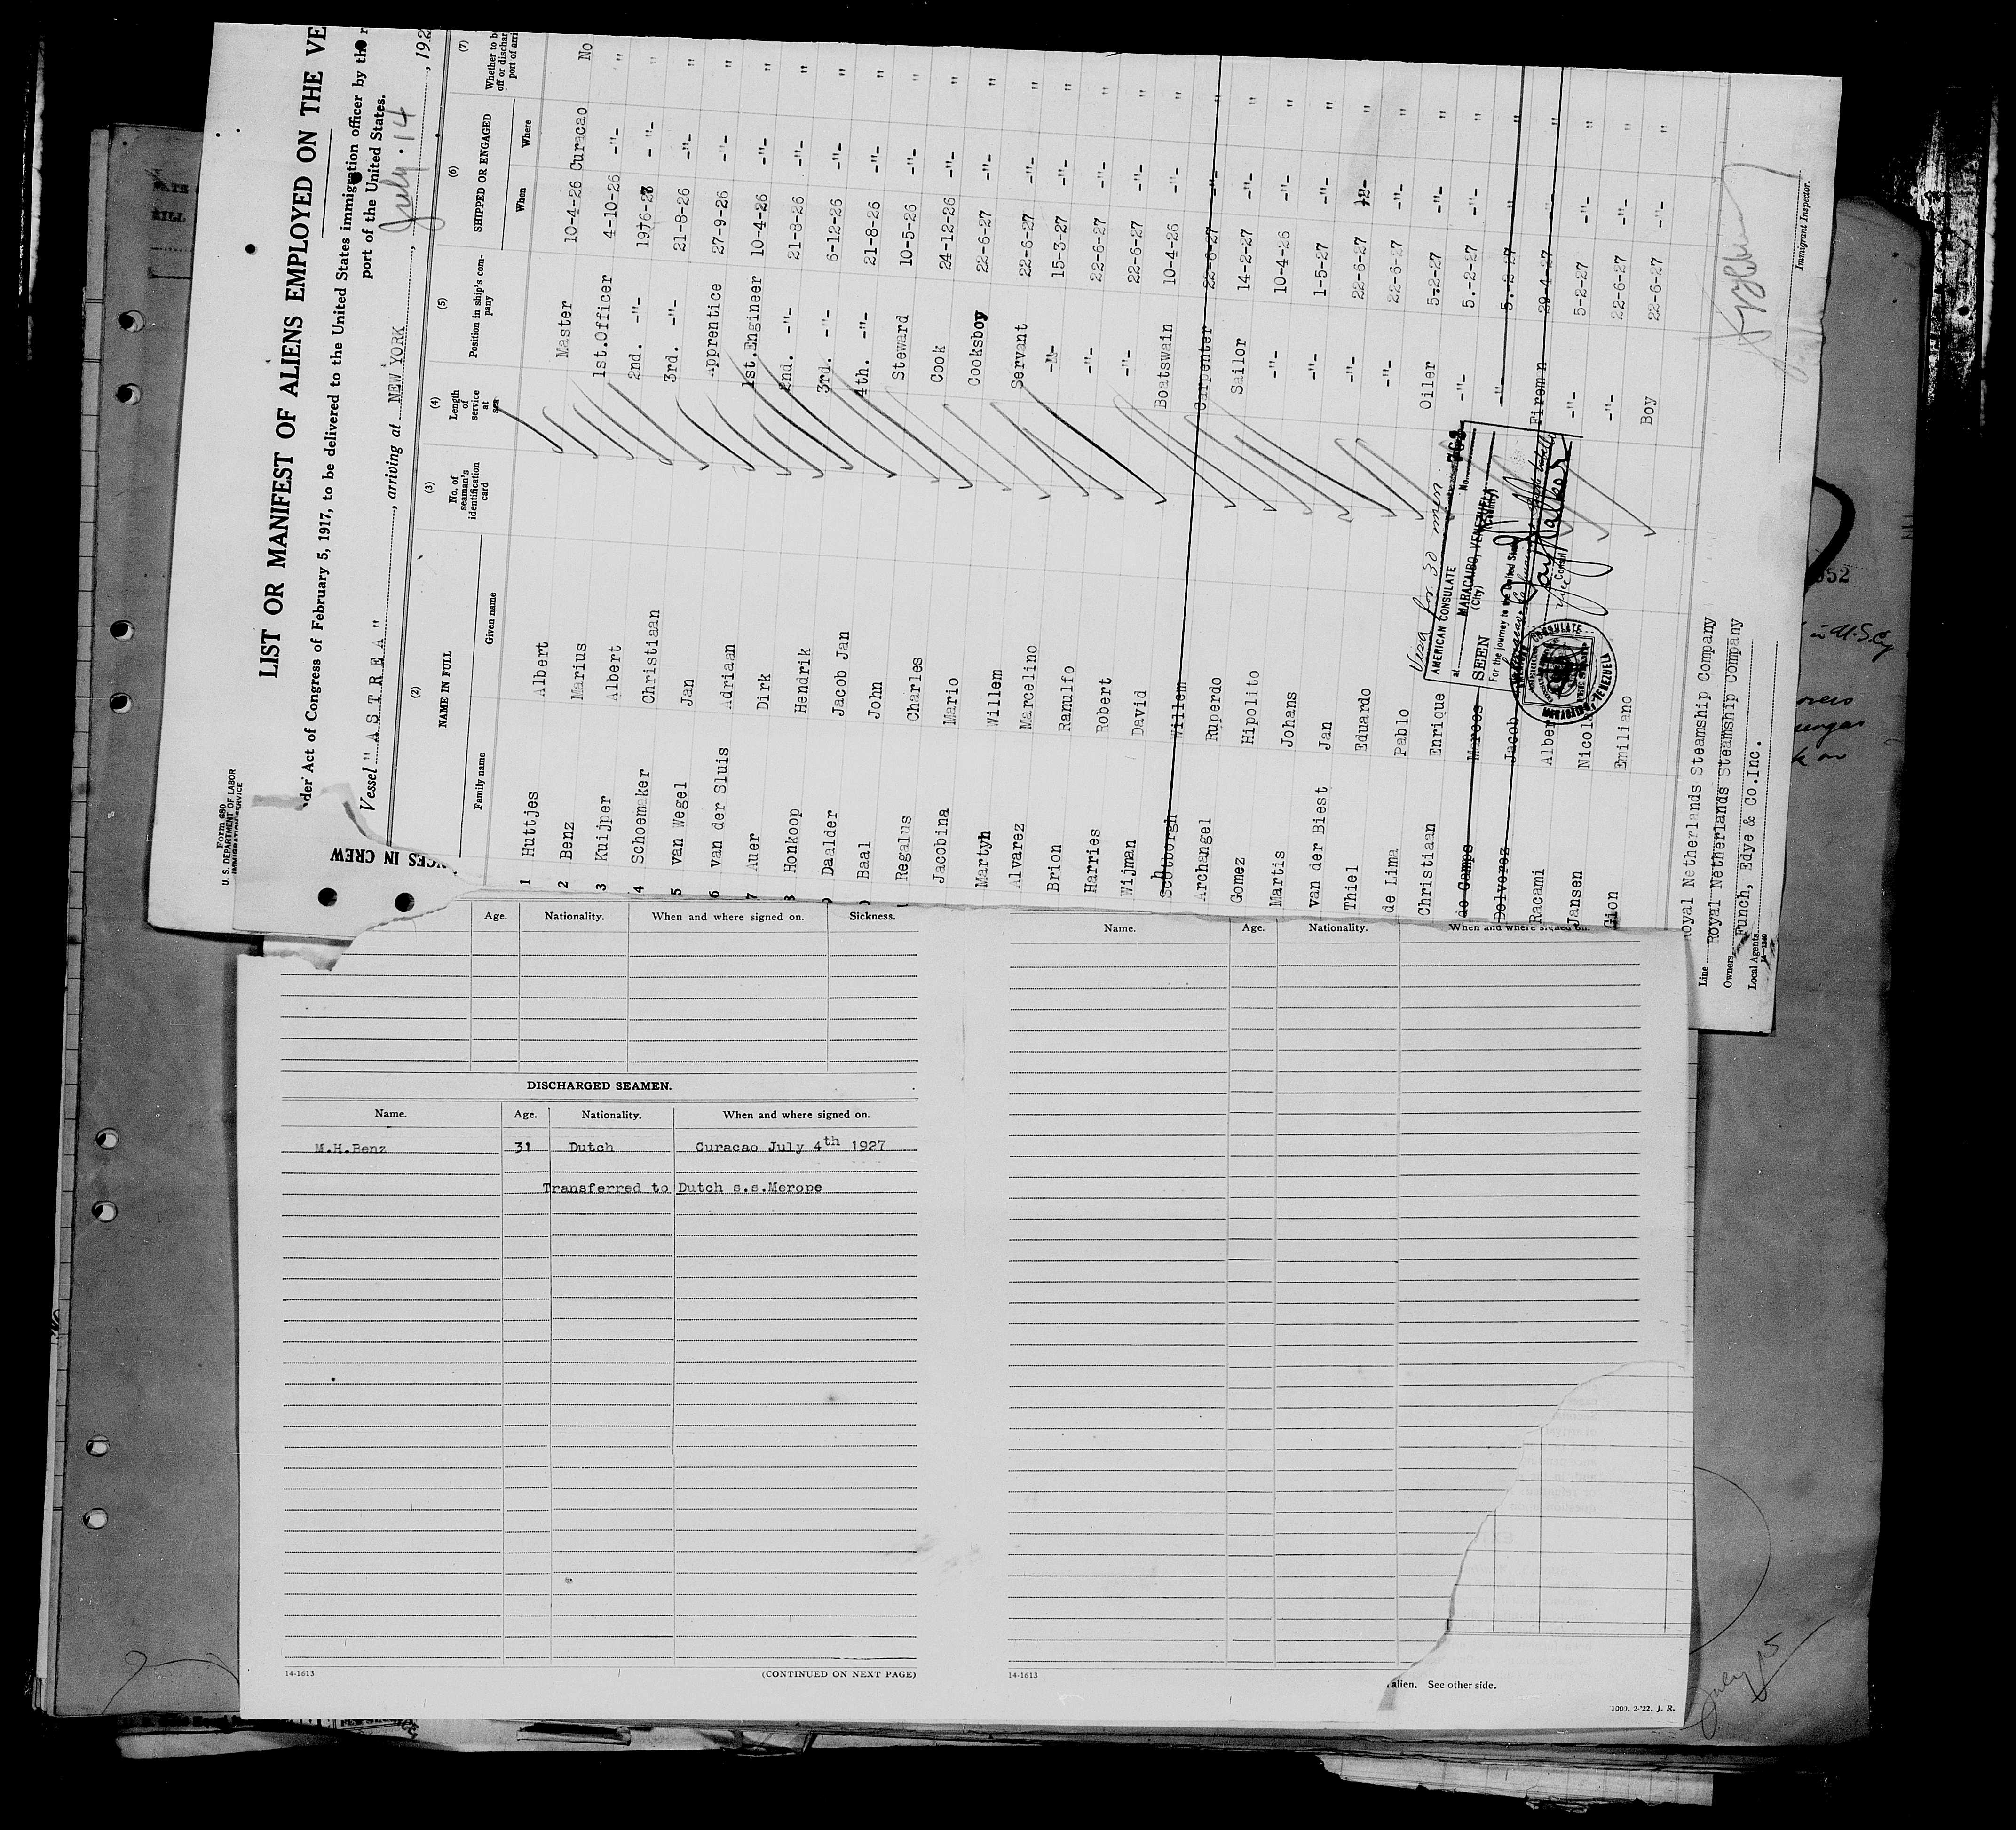 Form 680
U. S. DEPARTMENT OF LABOR
IMMIGRATION SERVICE
LIST OR MANIFEST OF ALIENS EMPLOYED ON THE VE
der Act of Congress of February 5, 1917, to be delivered to the United States immigration officer by the r
port of the United States.
Vessel "ASTREA", arriving at NEW YORK, July 14, 192
(2) (3) (4) (5) (6) (7)
NAME IN FULL No. of seaman's identification card Length of service at sea Position in ship's company SHIPPED OR ENGAGED Whether to b off or dischar port of arri
Family name Given name When Where
1 Huttjes Albert Master 10-4-26 Curacao No
2 Benz Marius 1st.Officer 4-10-26 -"- "
3 Kuijper Albert 2nd. -"- -"- "
4 Schoemaker Christiaan 3rd. -"- 21-8-26 -"- "
5 van Wegel Jan Apprentice 27-9-26 -"- "
6 van der Sluis Adriaan 1st.Engineer 10-4-26 -"- "
7 Auer Dirk 2nd. -"- 21-8-26 -"- "
8 Honkoop Hendrik 3rd. -"- 6-12-26 -"- "
9 Daalder Jacob Jan 4th. -"- 21-8-26 -"- "
Baal John Steward 10-5-26 -"- "
Regalus Charles Cook 24-12-26 -"- "
Jacobina Mario Cooksboy 22-6-27 -"- "
Martyn Willem Servant 22-6-27 -"- "
Alvarez Marcelino -"- 15-3-27 -"- "
Brion Ramulfo -"- 22-6-27 -"- "
Harries Robert -"- 22-6-27 -"- "
Wijman David Boatswain 10-4-26 -"- "
Schotborgh Willem Carpenter 22-6-27 -"- "
Archangel Ruperdo Sailor 14-2-27 -"- "
Gomez Hipolito -"- 10-4-26 -"- "
Martis Johans -"- 1-5-27 -"- "
van der Biest Jan -"- 22-6-27 -"- "
Thiel Eduardo -"- 22-6-27 -"- "
de Lima Pablo Oiler 5-2-27 -"- "
Christiaan Enrique -"- 5.-2-27 -"- "
de Camps Marcos -"- 5.-2-27 " "
Dolverez Jacob Firem n 29-4-27 -"- "
Racami Alber -"- 5-2-27 -"- "
Jansen Nicola -"- 22-6-27 -"- "
Gion Emiliano Boy 22-6-27 -"- "
Visa for 30 men
AMERICAN CONSULATE
at MARACAIBO, VENEZUELA No.
(City) (Country)
SEEN
For the journey to the United States
Consul
VENEZUELA
Line Royal Netherlands Steamship Company
Owners Royal Netherlands Steamship Company
Local Agents Funch, Edye & Co.Inc.
Immigrant Inspector.
NGES IN CREW
Age. Nationality. When and where signed on. Sickness.
Name. Age. Nationality. When and where signed on.
DISCHARGED SEAMEN.
Name. Age. Nationality. When and where signed on.
M.H.Benz 31 Dutch Curacao July 4th 1927
Transferred to Dutch s.s.Merope
14-1613 (CONTINUED ON NEXT PAGE)
14-1613
alien. See other side.
1000. 2-'22. J. R.
July 15
in U.S.